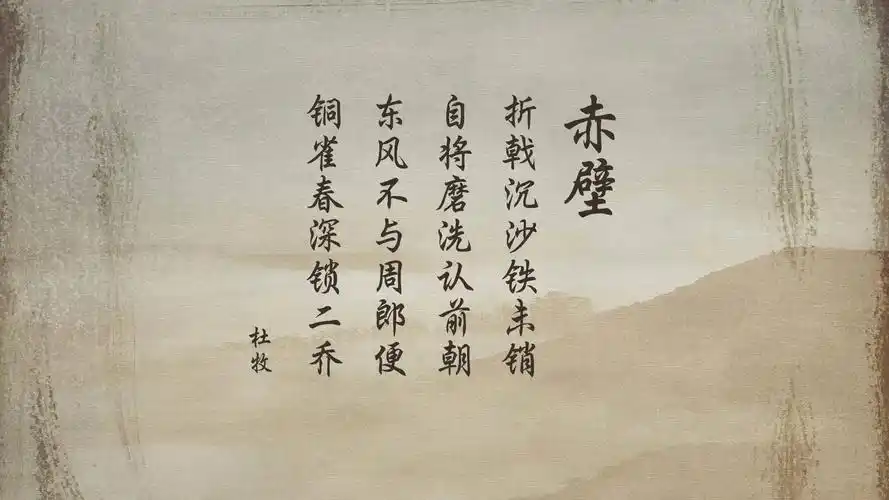 赤壁
折戟沉沙铁未销
自将磨洗认前朝
东风不与周郎便
铜雀春深锁二乔
杜牧